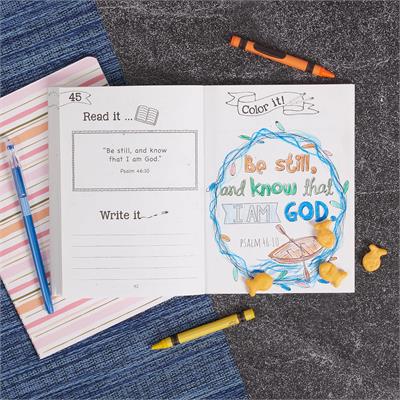 45
Read it ...
"Be still, and know
that I am God."
Psalm 46:10
Write it
92
Color it!
Be still,
and know that
I AM GOD.
PSALM 46:10